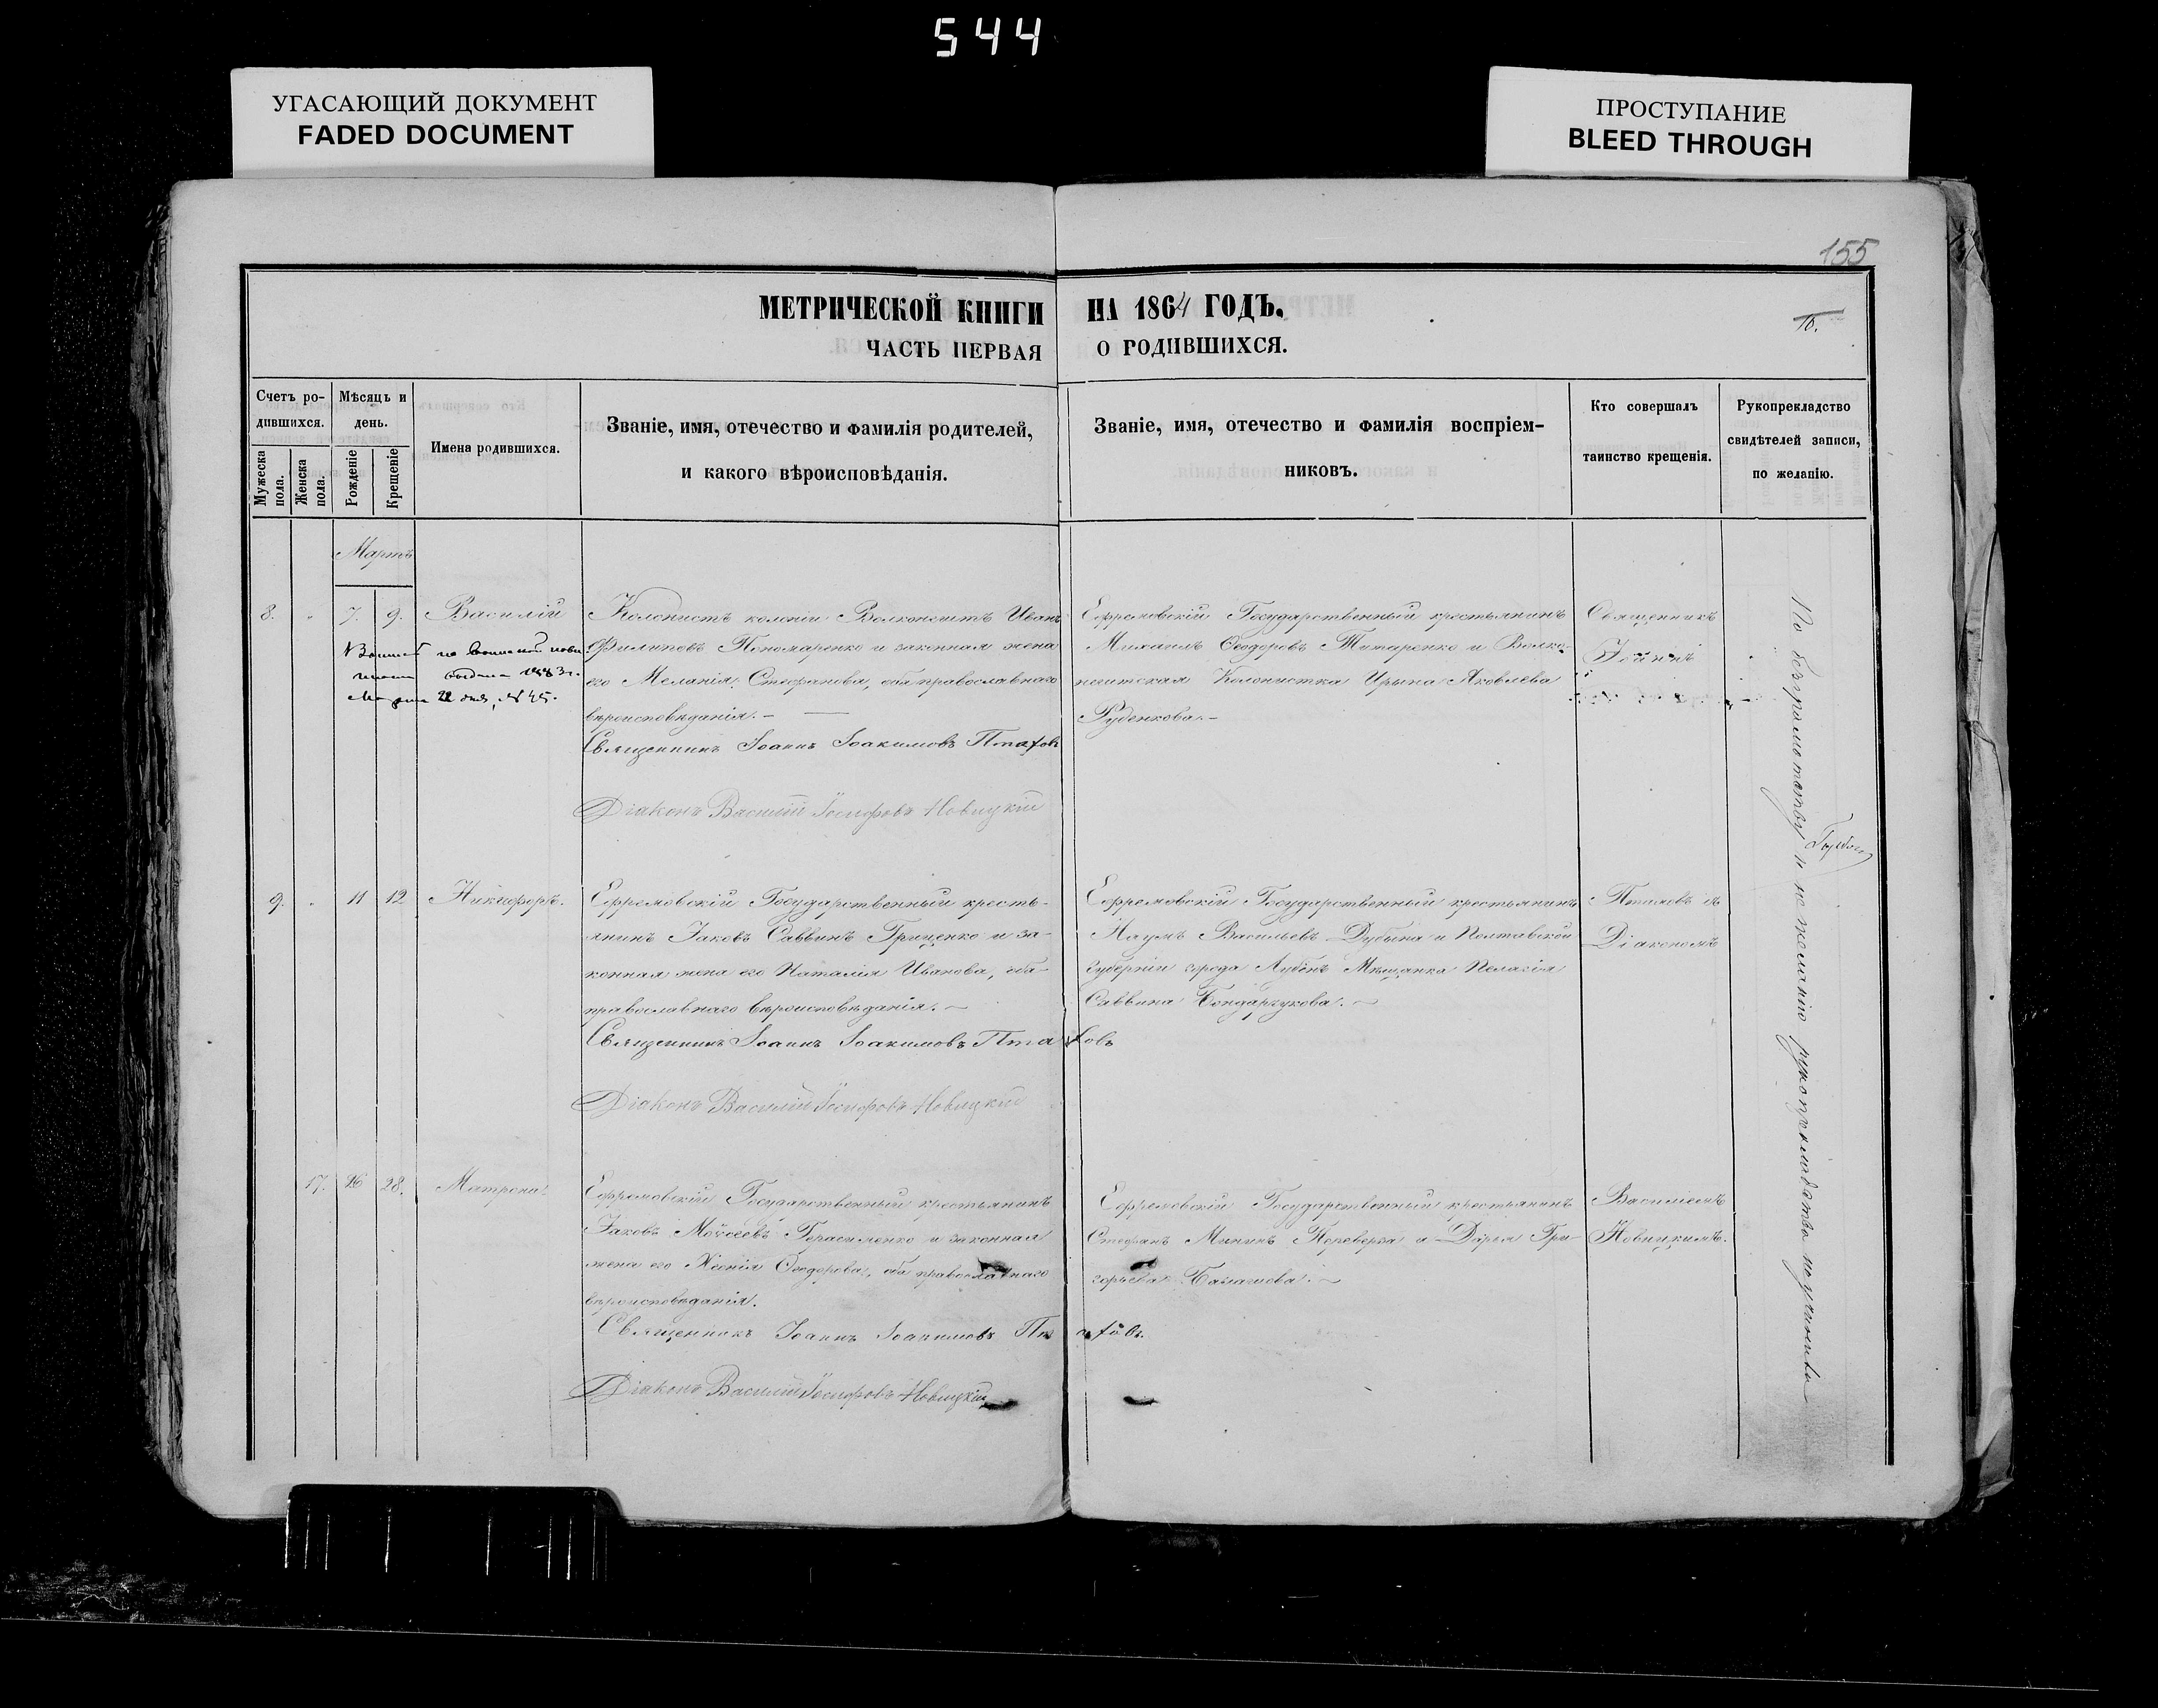 544
УГАСАЮЩИЙ ДОКУМЕНТ
FADED DOCUMENT
ПРОСТУПАНИЕ
BLEED THROUGH
155
МЕТРИЧЕСКОЙ КНИГИ НА 1864 ГОДЪ.
ЧАСТЬ ПЕРВАЯ О РОДИВШИХСЯ.
10.
Счетъ ро-
дившихся.
Мужеска пола.
Женска пола.
Мѣсяць и
день.
Рожденіе
Крещеніе
Имена родившихся.
Званіе, имя, отечество и фамилія родителей,
и какого вѣроисповѣданія.
Званіе, имя, отечество и фамилія воспріем-
никовъ.
Кто совершалъ
таинство крещенія.
Рукопрекладство
свидѣтелей записи,
по желанію.
Мартъ
8. " 7. 9. Василій
по воинской пови
выдана 1883 г.
Марта 22 дня, № 45.
Колонистъ колоніи Волконештъ Иванъ
Филиповъ Пономаренко и законная жена
его Меланія Стефанова, оба православнаго
вѣроисповѣданія. –
Священникъ Іоаннъ Іоакимовъ Птаховъ
Діаконъ Василій Іосифовъ Новицкій
Ефремовскій Государственный крестьянинъ
Михаилъ Ѳеодоровъ Титаренко и Волко-
нештская Колонистка Ирына Яковлева
Руденкова. –
Священникъ
Іоаннъ
9. " 11 12 Никифоръ.
Ефремовскій Государственный кресть-
янинъ Іаковъ Саввинъ Гриценко и за-
конная жена его Наталія Иванова, оба
православнаго вѣроисповѣданія. –
Священникъ Іоаннъ Іоакимовъ Птаховъ
Діаконъ Василій Іосифовъ Новицкій
Ефремовскій Государственный крестьянинъ
Наумъ Васильевъ Дубына и Полтавской
губерніи города Лубенъ Мѣщанка Пелагія
Саввина Бондарчукова. –
Птаховъ съ
Діакономъ
17. 26 28. Матрона
Ефремовскій Государственный крестьянинъ
Іаковъ Моѵсеевъ Герасименко и законная
жена его Ксенія Ѳеодорова, оба православнаго
вѣроисповѣданія.
Священникъ Іоаннъ Іоакимовъ Птаховъ.
Діаконъ Василій Іосифовъ Новицкій
Ефремовскій Государственный крестьянинъ
Стефанъ Мининъ Переверза и Дарія Гри-
горьева. –
Василіемъ
Новицкимъ.
По безграмотству и не желанію рукоприкладства не учинено